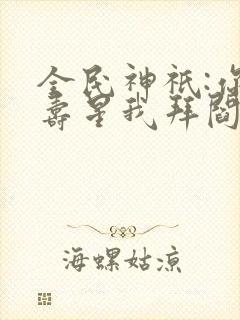 全民神祇:你
寿星我拜阎
海螺姑凉